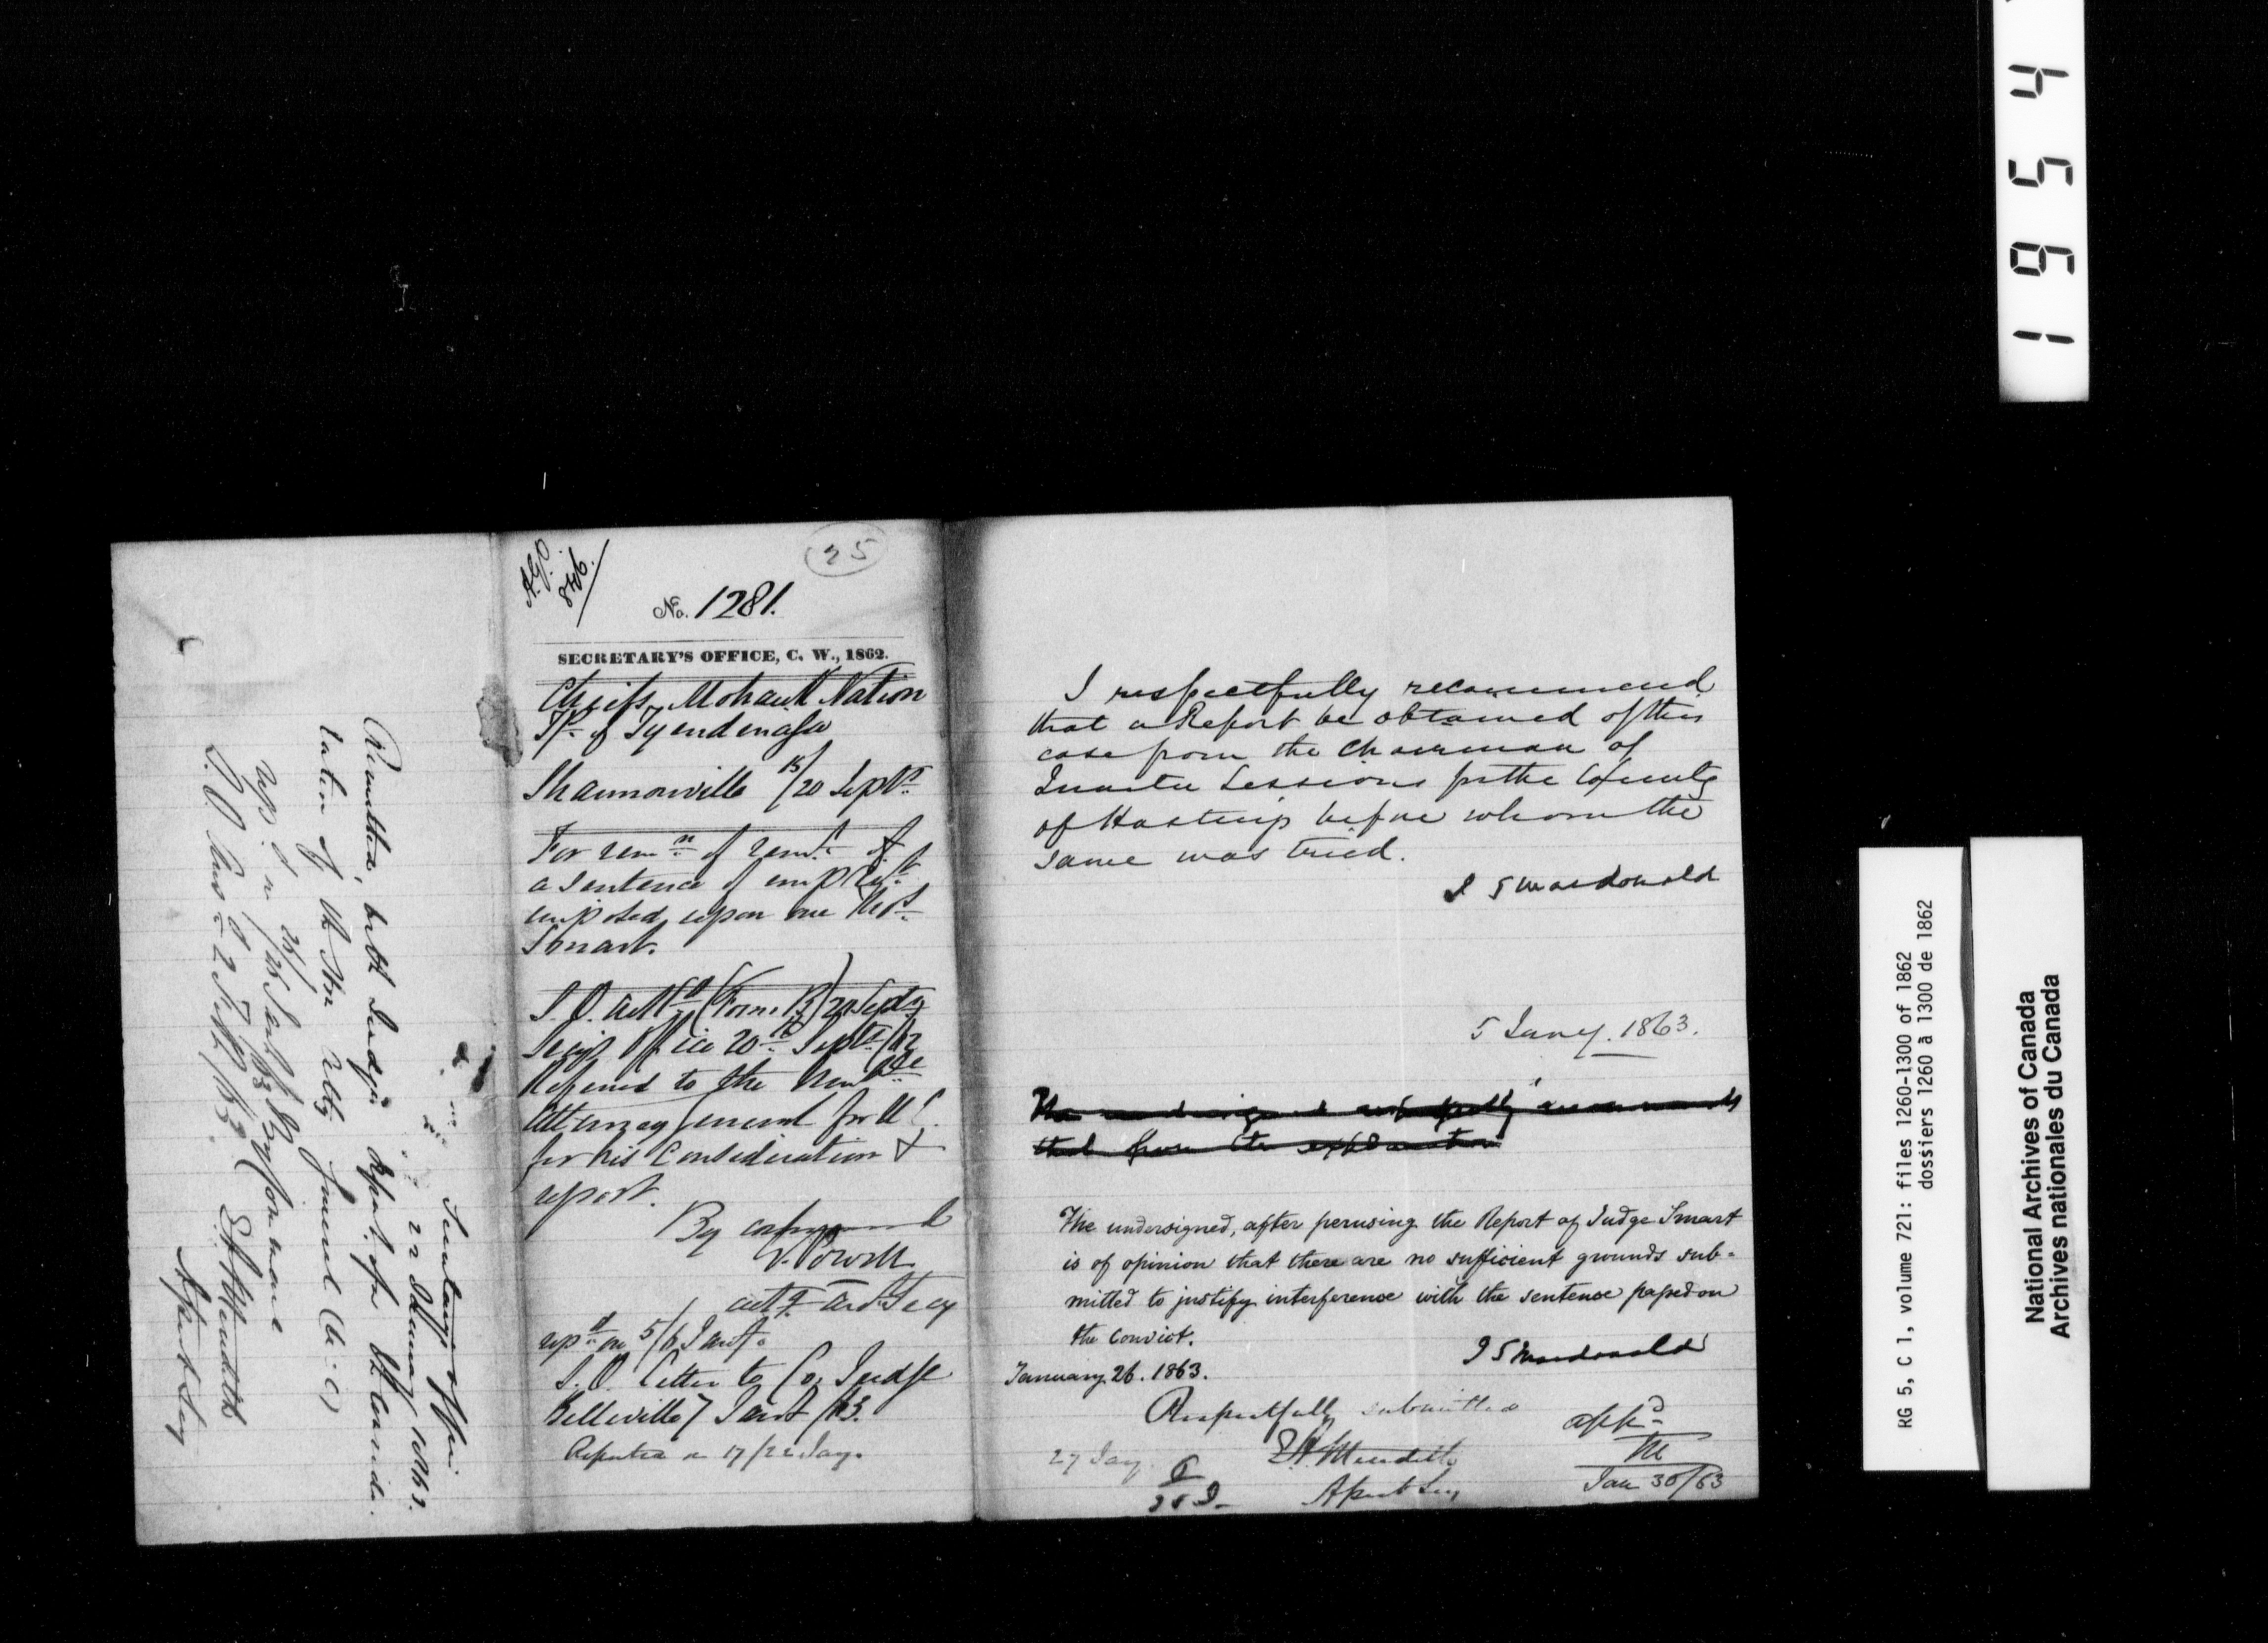 A.G.O.
846.
25
No. 1281.
SECRETARY'S OFFICE, C. W., 1862.
Chiefs, Mohawk Nation
Tp. of Tyendenaga
Shannonville 15/20 Septr.
For remn. of
a sentence of
imposed upon one Thos.
Smart.
S. O. (Form B) 20 Septr
Office 20th Septr/62
Referred to the Honble
Attorney General for U. C.
for his Consideration &
report.
By command
V. Powell
repd. on 5/6 Jany.
S. O. Letter to Co. Judge
Belleville 7 Jany /63.
Reported on 17/22 Jany.
Secretary's Office
22 January 1863.
Remitted, with Judge's Report, for the Consider-
ation of the Hon Atty General U: C:
E A Meredith
Assistant Secy
S.O.
I respectfully recommend
that a Report be obtained of this
case from the Chairman of
Quarter Sessions for the County
of Hastings before whom the
same was tried.
J S Macdonald
5 Jany. 1863.
The undersigned respectfully recommends
that from the explanation
The undersigned, after perusing the Report of Judge Smart
is of opinion that there are no sufficient grounds sub-
mitted to justify interference with the sentence passed on
the Convict.
J S Macdonald
January 26. 1863.
Respectfully submitted
E A Meredith
Asst Secy
27 Jany.
appd.
M
Jan 30/63
1954
RG 5, C 1, volume 721: files 1260-1300 of 1862
dossiers 1260 à 1300 de 1862
National Archives of Canada
Archives nationales du Canada